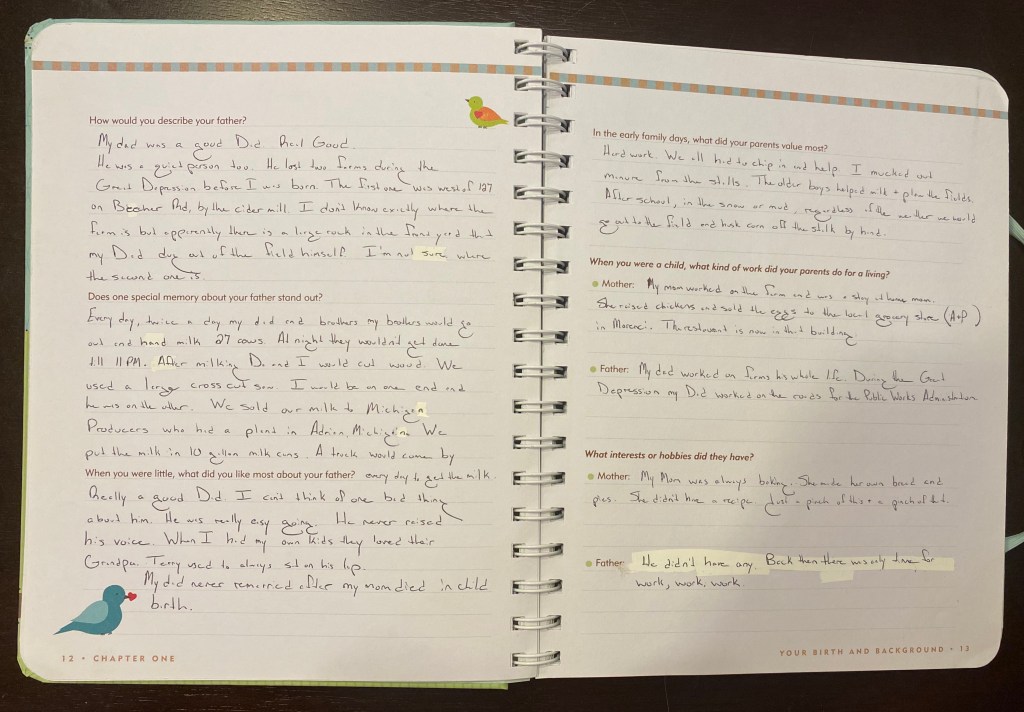 How would you describe your father?
My dad was a good Dad. Real Good.
He was a quiet person too. He lost two farms during the
Great Depression before I was born. The first one was west of 127
on Beecher Rd, by the cider mill. I don't know exactly where the
farm is but apparently there is a large rock in the front yard that
my Dad dug out of the field himself. I'm not sure where
the second one is.
Does one special memory about your father stand out?
Every day, twice a day my dad and brothers my brothers would go
out and hand milk 27 cows. At night they wouldn't get done
till 11 PM. After milking Dad and I would cut wood. We
used a large cross cut saw. I would be on one end and
he was on the other. We sold our milk to Michigan
Producers who had a plant in Adrian, Michigan. We
put the milk in 10 gallon milk cans. A truck would come by
When you were little, what did you like most about your father? every day to get the milk.
Really a good Dad. I can't think of one bad thing
about him. He was really easy going. He never raised
his voice. When I had my own kids they loved their
Grandpa. Terry used to always sit on his lap.
My dad never remarried after my mom died in child
birth.
12 • CHAPTER ONE
In the early family days, what did your parents value most?
Hard work. We all had to chip in and help. I mucked out
manure from the stalls. The older boys helped milk + plant the fields.
After school, in the snow or mud, regardless of the weather we would
go out to the field and husk corn off the stalk by hand.
When you were a child, what kind of work did your parents do for a living?
Mother: My mom worked on the farm and was a stay at home mom.
She raised chickens and sold the eggs to the local grocery store (A+P)
in Morenci. The restaurant is now in that building.
Father: My dad worked on farms his whole life. During the Great
Depression my Dad worked on the roads for the Public Works Administration
What interests or hobbies did they have?
Mother: My Mom was always baking. She made her own bread and
pies. She didn't have a recipe. Just a pinch of this + a pinch of that.
Father: He didn't have any. Back then there was only time for
work, work, work.
YOUR BIRTH AND BACKGROUND • 13